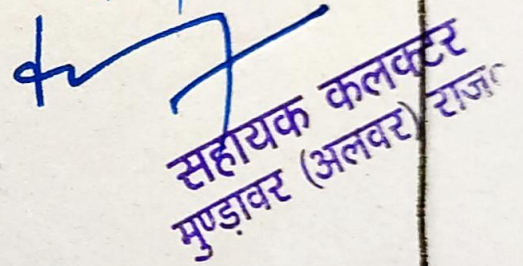 सहायक कलक्टर
मुण्ड़ावर (अलवर) राज०